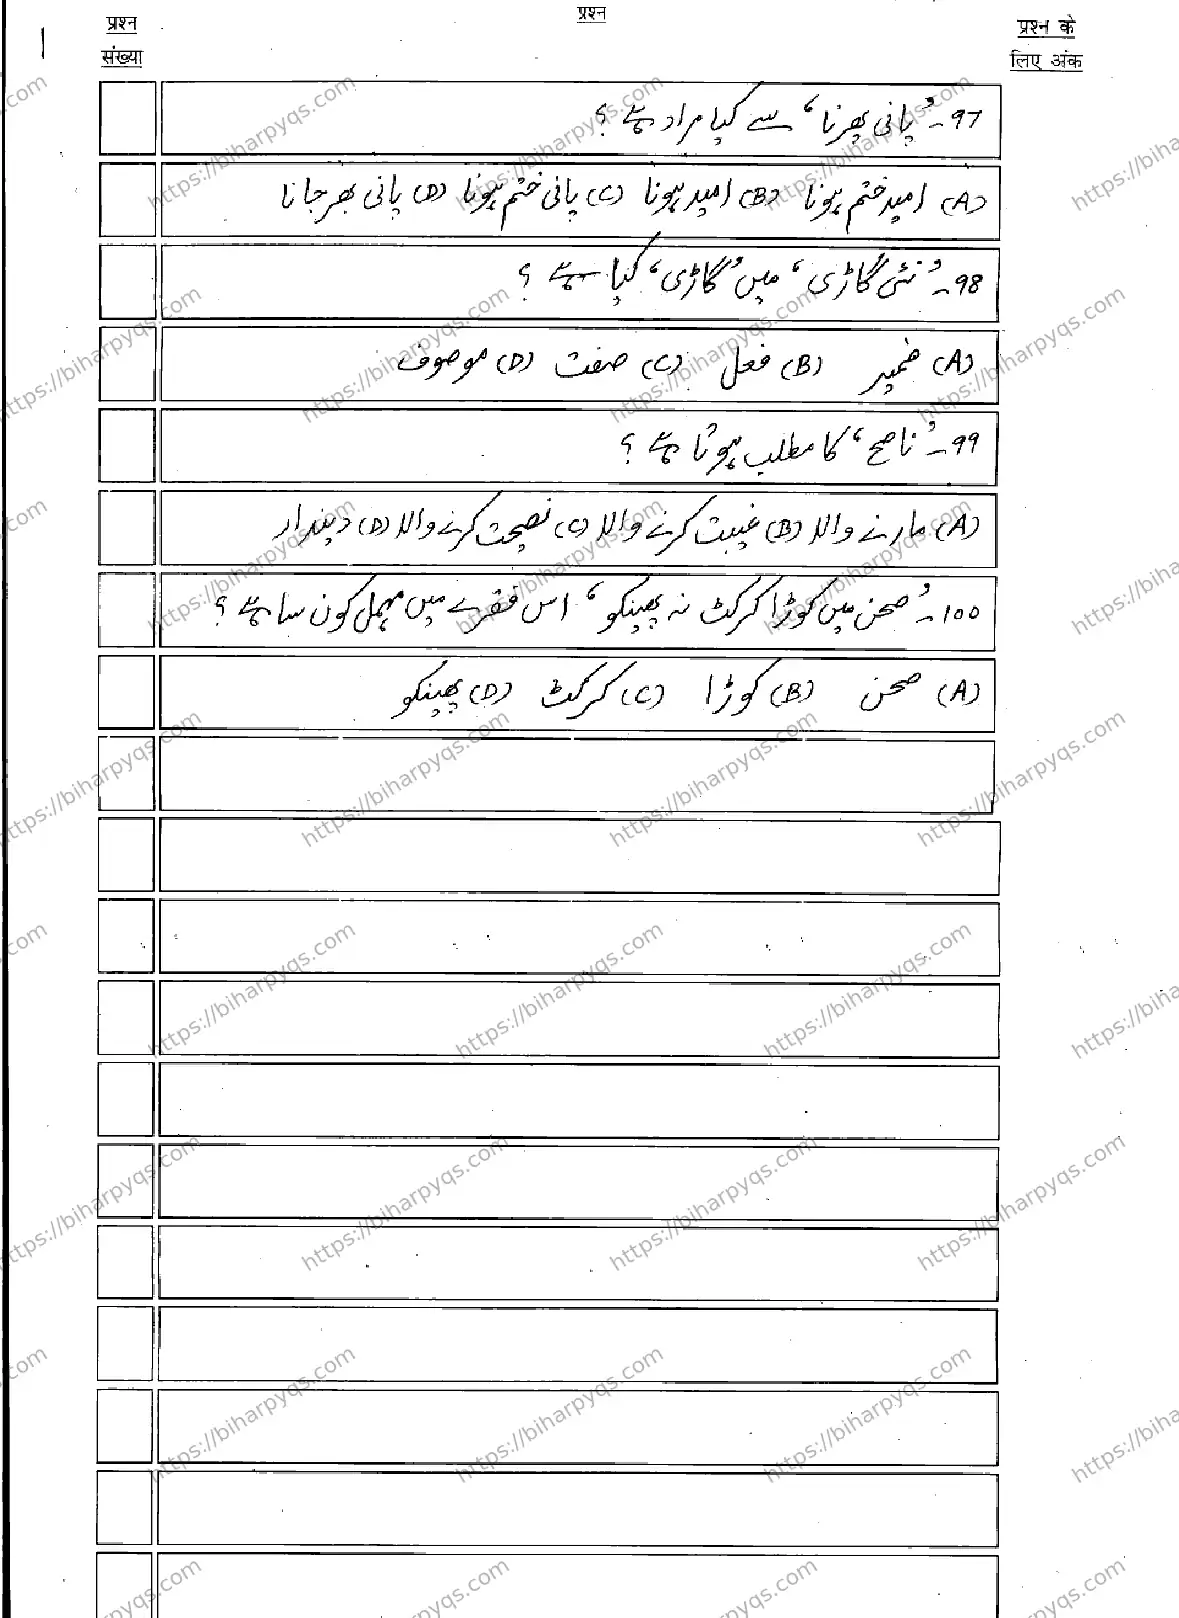 प्रश्न संख्या
प्रश्न
प्रश्न के लिए अंक
97۔ ’پانی پھرنا‘ سے کیا مراد ہے؟
(A) امید ختم ہونا (B) امید ہونا (C) پانی ختم ہونا (D) پانی بھر جانا
98۔ ’نئی گاڑی‘ میں ’گاڑی‘ کیا ہے؟
(A) ضمیر (B) فعل (C) صفت (D) موصوف
99۔ ’ناصح‘ کا مطلب ہوتا ہے؟
(A) مارنے والا (B) غیبت کرنے والا (C) نصیحت کرنے والا (D) دیندار
100۔ ’صحن میں کوڑا کرکٹ نہ پھینکو‘ اس فقرے میں مہمل کون سا ہے؟
(A) صحن (B) کوڑا (C) کرکٹ (D) پھینکو
https://biharpyqs.com